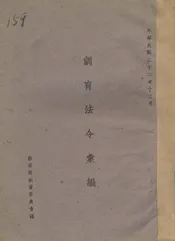 159
中華民國三十二年十二月
訓育法令彙編